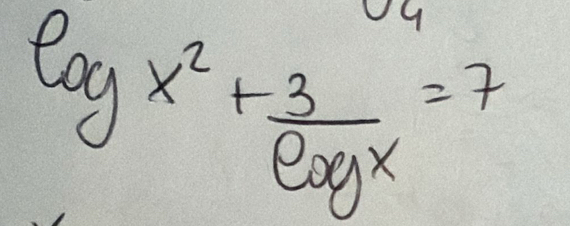 log x² + 3/log x = 7